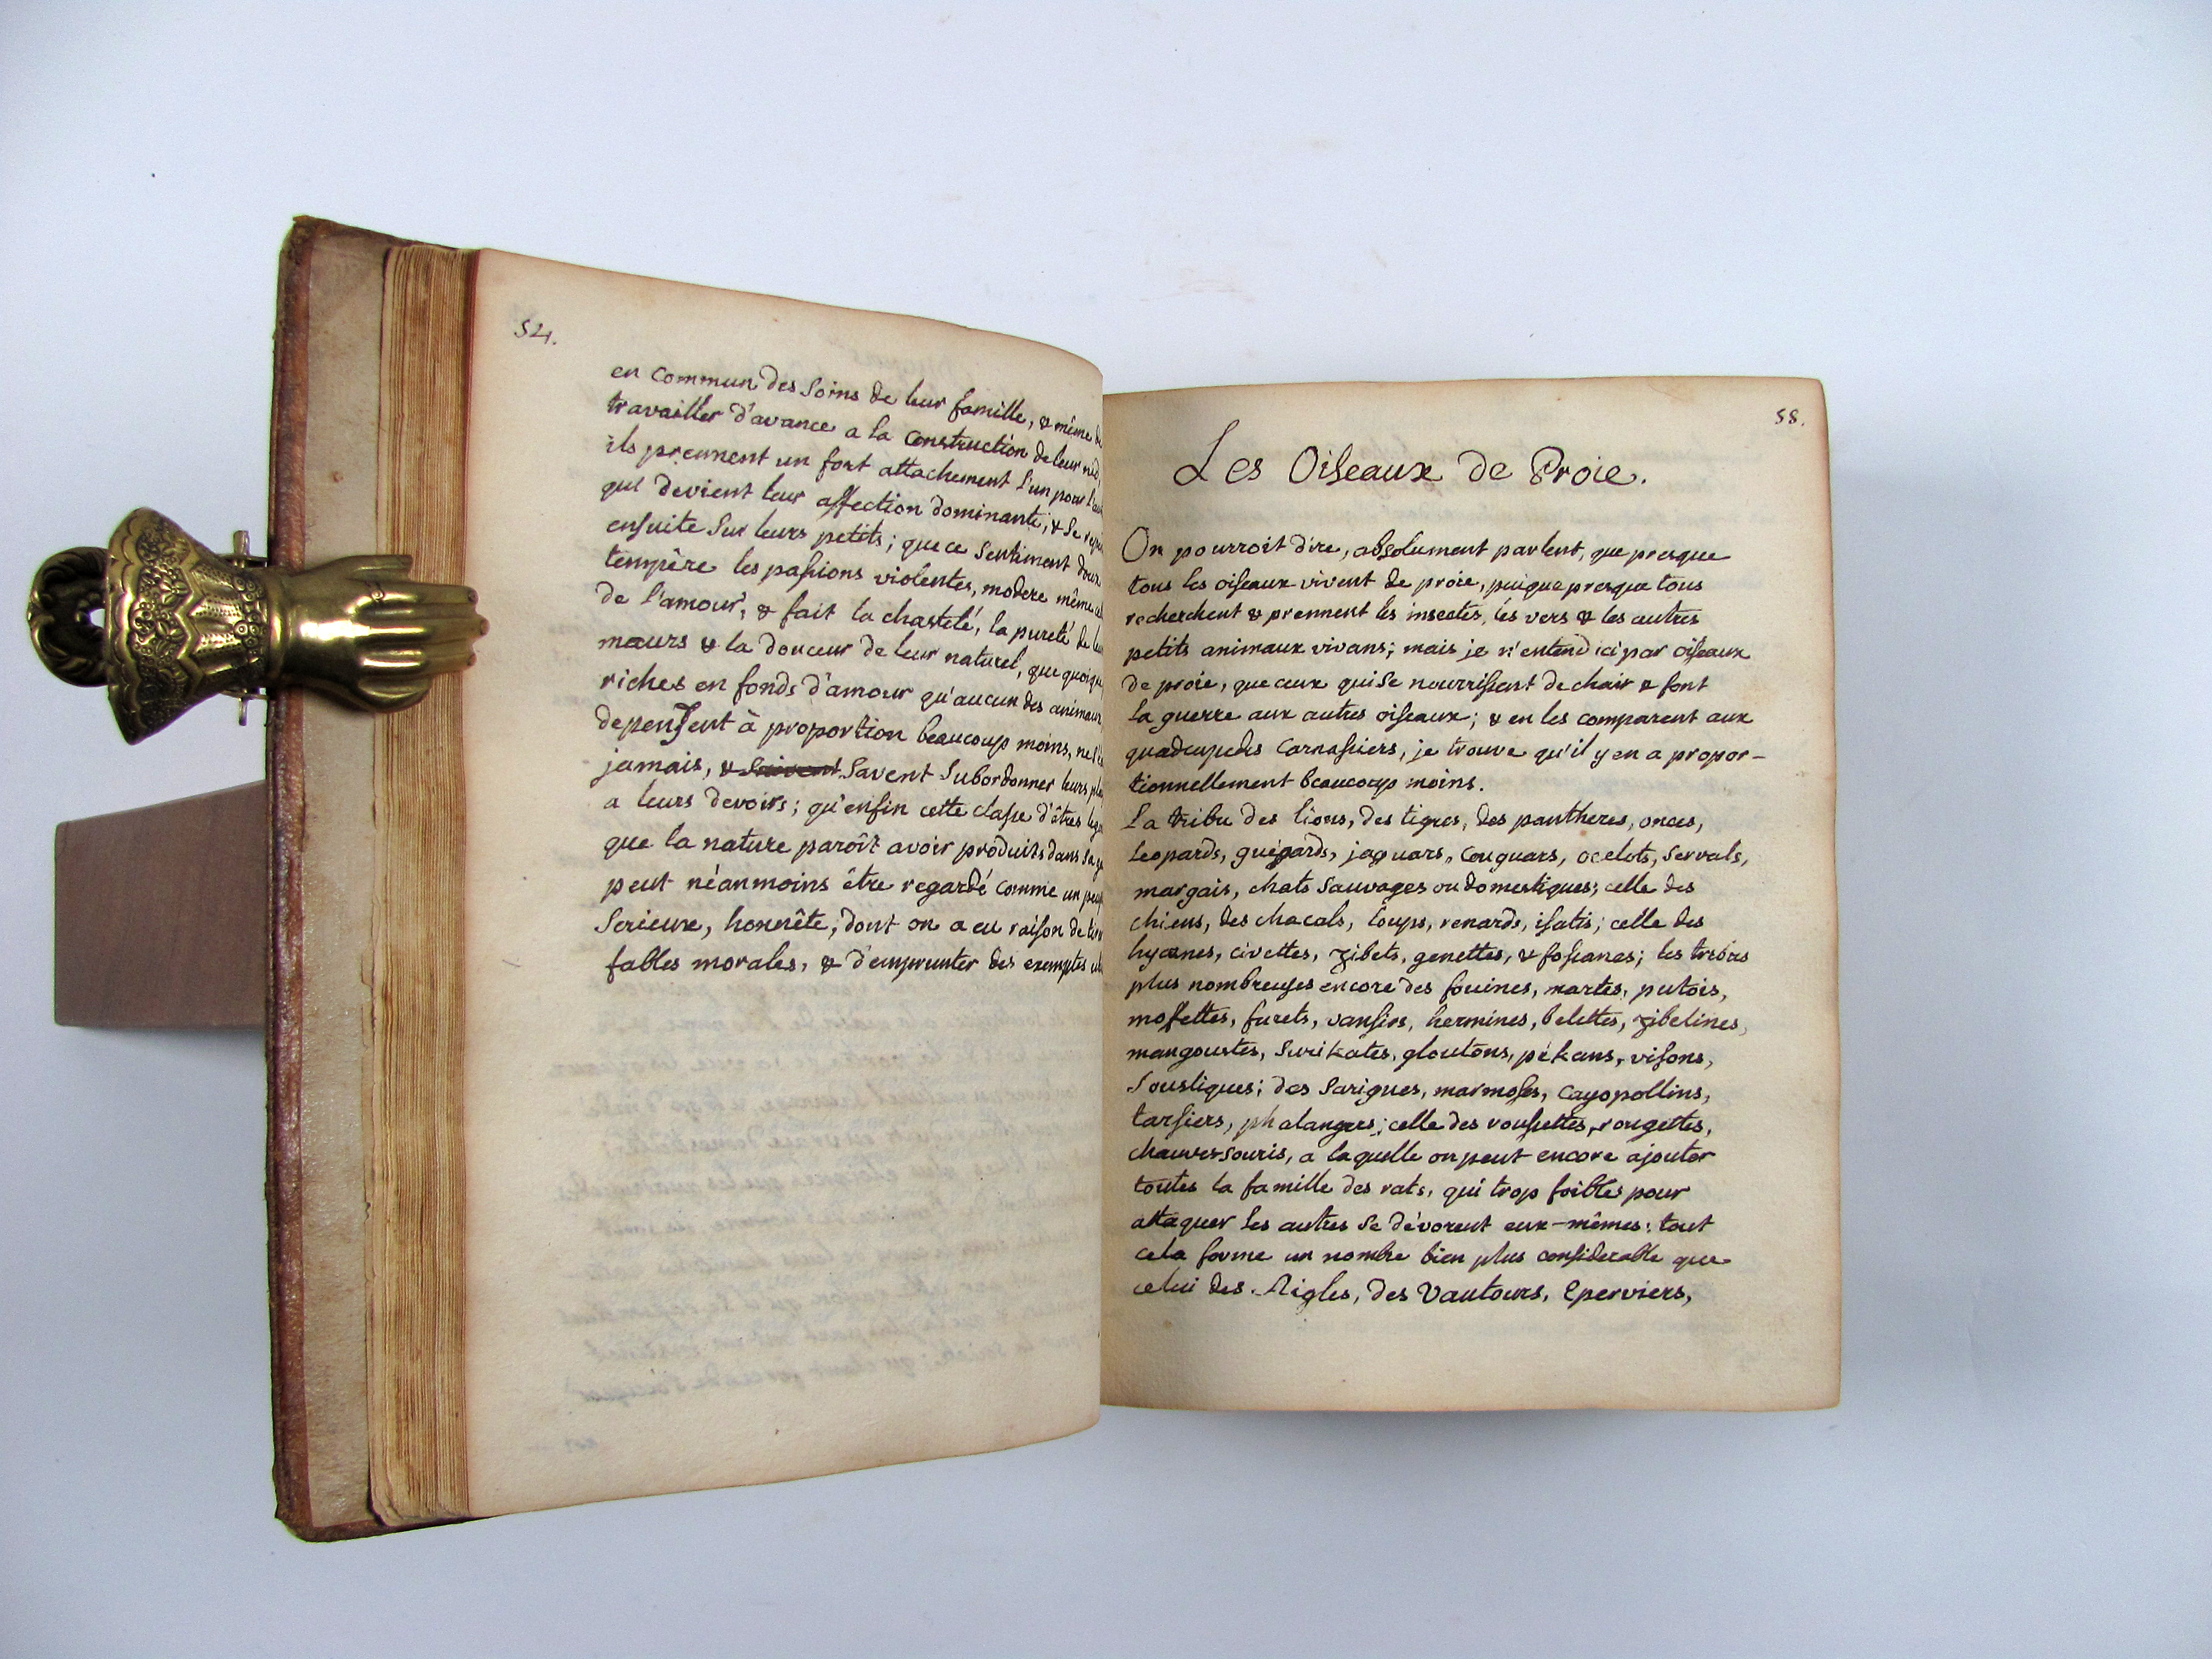 54.
en commun des soins de leur famille, & même de
travailler d'avance a la construction de leur nid,
ils prennent un fort attachement l'un pour
qui devient leur affection dominante, & se
ensuite sur leurs petits; que ce sentiment doux
tempère les passions violentes, modere même
de l'amour, & fait la chasteté, la pureté de
mœurs & la douceur de leur naturel, que
riches en fonds d'amour qu'aucun des animaux
depensent à proportion beaucoup moins,
jamais, & savent subordonner leurs
a leurs devoirs; qu'enfin cette classe d'êtres
que la nature paroît avoir produits dans sa
peut néanmoins être regardé comme un
serieux, honnête, dont on a eu raison de
fables morales, & d'emprunter des exemples
55.
Les Oiseaux de Proie.
On pourroit dire, absolument parlent, que presque
tous les oiseaux vivent de proie, puique presque tous
recherchent & prennent les insectes, les vers & les autres
petits animaux vivans; mais je n'entend ici par oiseaux
de proie, que ceux qui se nourrissent de chair & font
la guerre aux autres oiseaux; & en les comparent aux
quadrupedes carnassiers, je trouve qu'il y en a propor-
tionnellement beaucoup moins.
La tribu des lions, des tigres, des pantheres, onces,
leopards, guépards, jaguars, couguars, ocelots, servals,
margais, chats sauvages ou domestiques; celle des
chiens, des chacals, loups, renards, isatis; celle des
hyænes, civettes, zibets, genettes, & fossanes; les tribus
plus nombreuses encore des fouines, martes, putois,
mofettes, furets, vansirs, hermines, belettes, zibelines,
mangoustes, surikates, gloutons, pékans, visons,
sousliques; des sarigues, marmoses, cayopollins,
tarsiers, phalangers; celle des roussettes, rougettes,
chauves souris, a laquelle on peut encore ajouter
toutes la famille des rats, qui trop foibles pour
attaquer les autres se dévorent eux-mêmes: tout
cela forme un nombre bien plus considerable que
celui des Aigles, des Vautours, Eperviers,